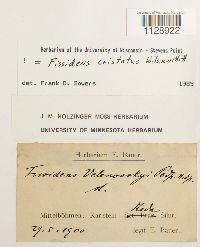 1128922
Herbarium of the University of Wisconsin - Stevens Point
! = Fissidens cristatus Wils.
det. Frank D. Bowers 1989
J. M. HOLZINGER MOSS HERBARIUM
UNIVERSITY OF MINNESOTA HERBARIUM
Herbarium E. Bauer.
Fissidens Velenovskyi Podp.
Mittelböhmen: Karlstein Silur.
29.5.1900 legit E. Bauer.